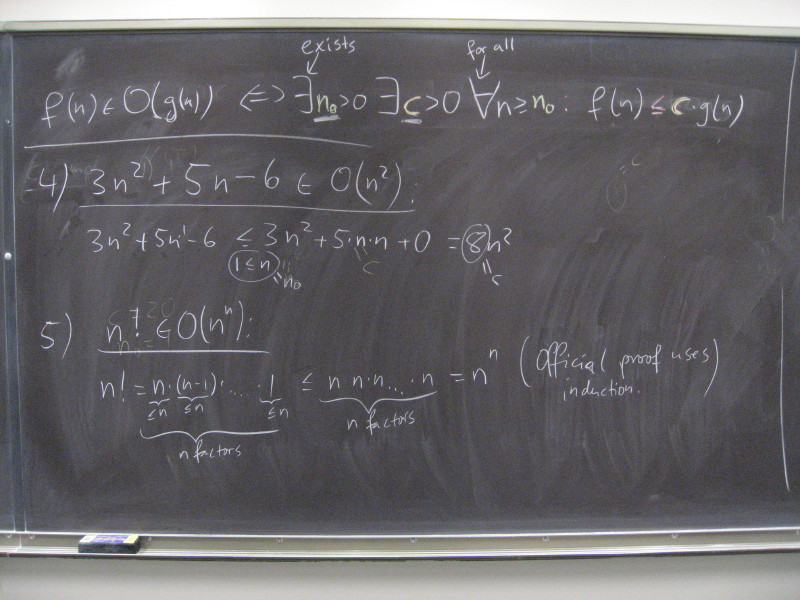 exists for all
f(n) ∈ O(g(n)) ⇔ ∃n₀>0 ∃c>0 ∀n≥n₀: f(n) ≤ c·g(n)
4) 3n² + 5n − 6 ∈ O(n²):
3n² + 5n¹ − 6 ≤ 3n² + 5·n·n + 0 = 8n²
1 ≤ n = n₀ = c = c
5) n! ∈ O(nⁿ):
n! = n·(n-1)· .... ·1 ≤ n·n·n....·n = nⁿ (Official proof uses
≤n ≤n ≤n induction.)
n factors n factors